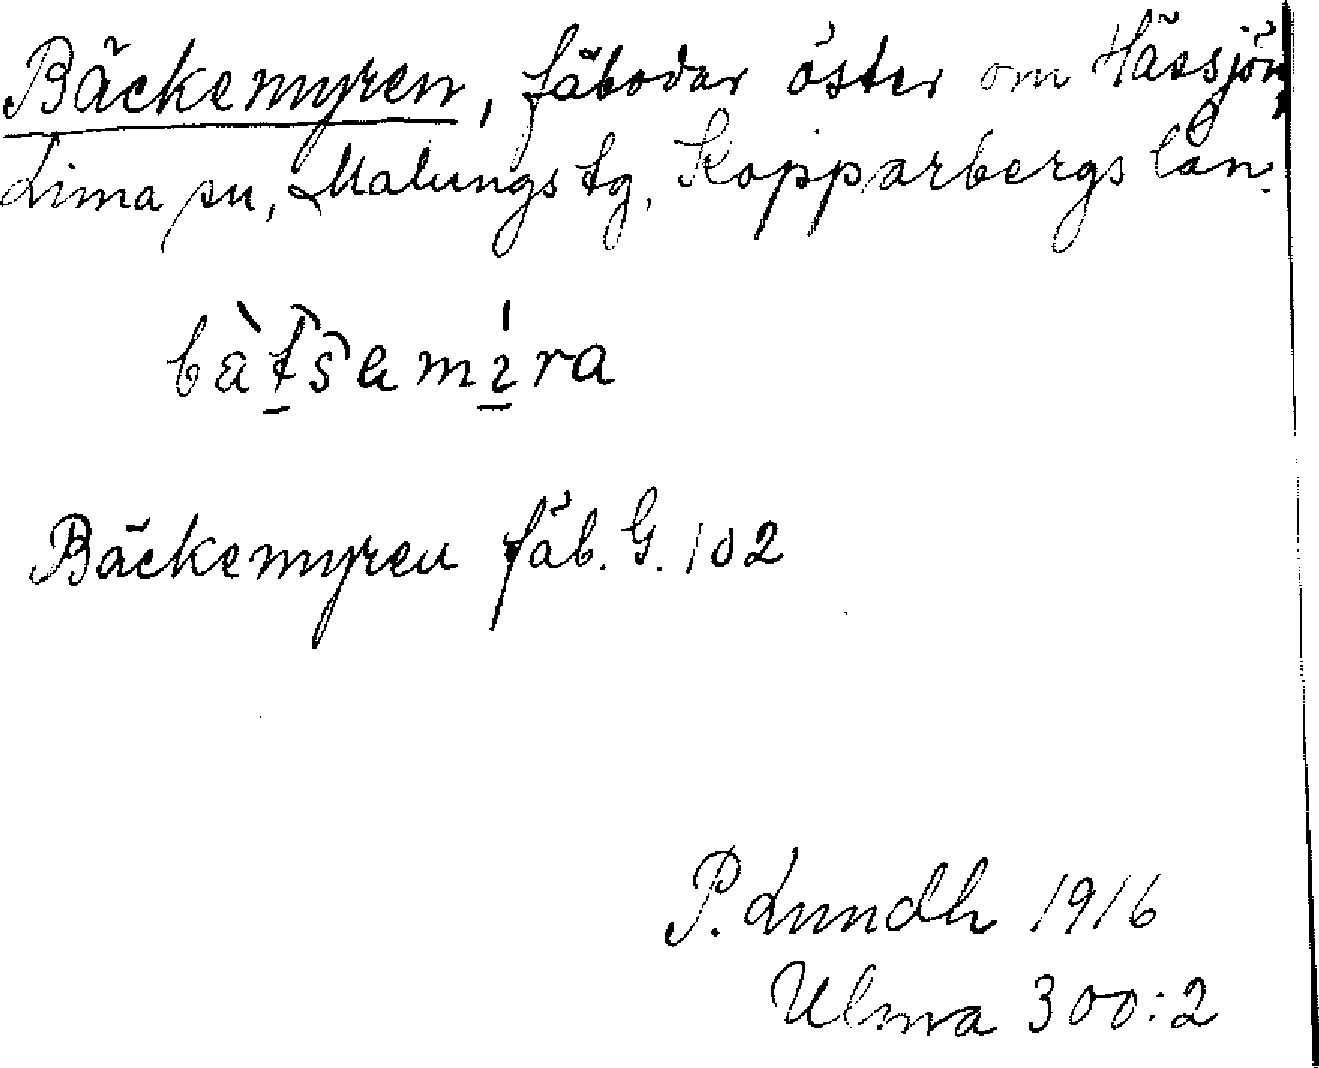 Bäckemyren, fäbodar öster om Hässjön,
Lima sn, Malungs tg, Kopparbergs län.
Bäckemyren fäb. G. 102
P. Lundh 1916
Ulma 300:2